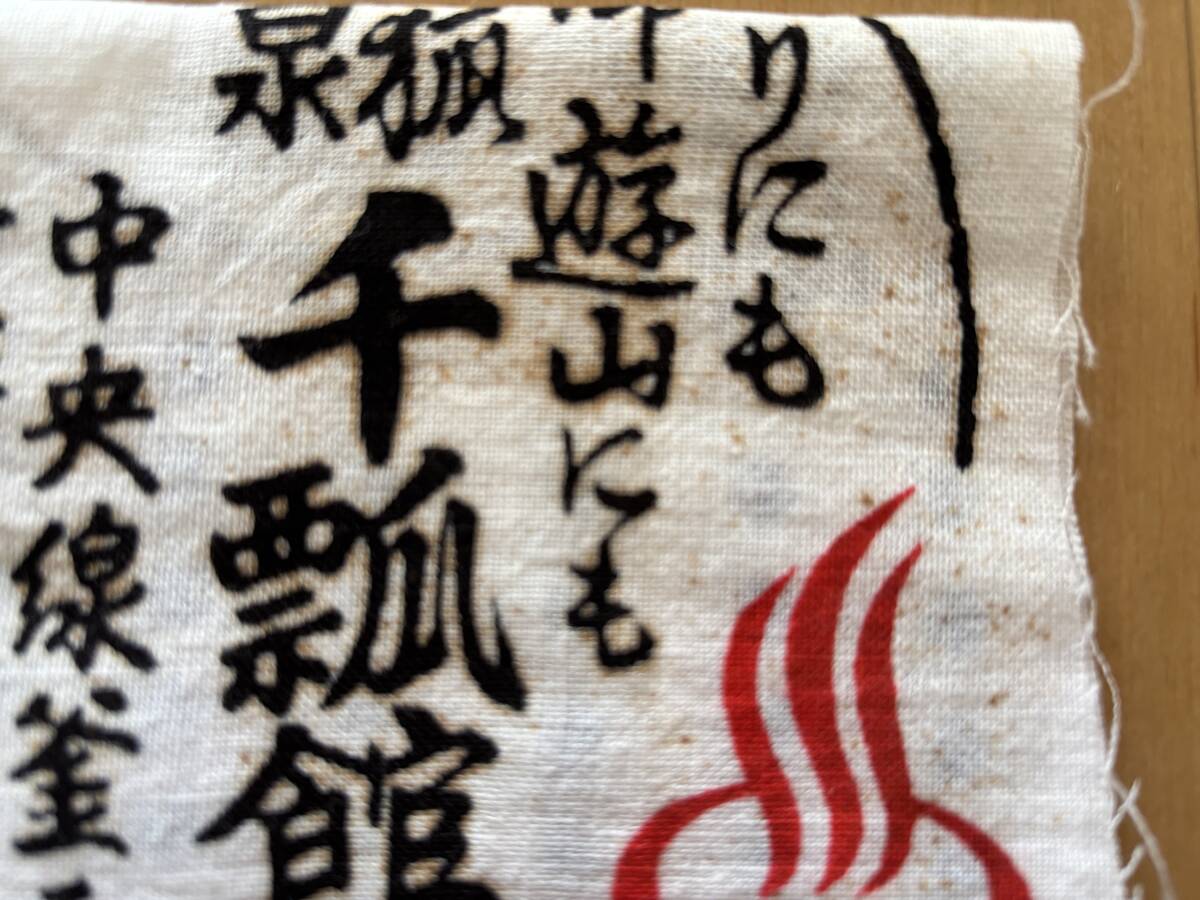 りにも
遊山にも
泉狐
千瓢館
中央線釜